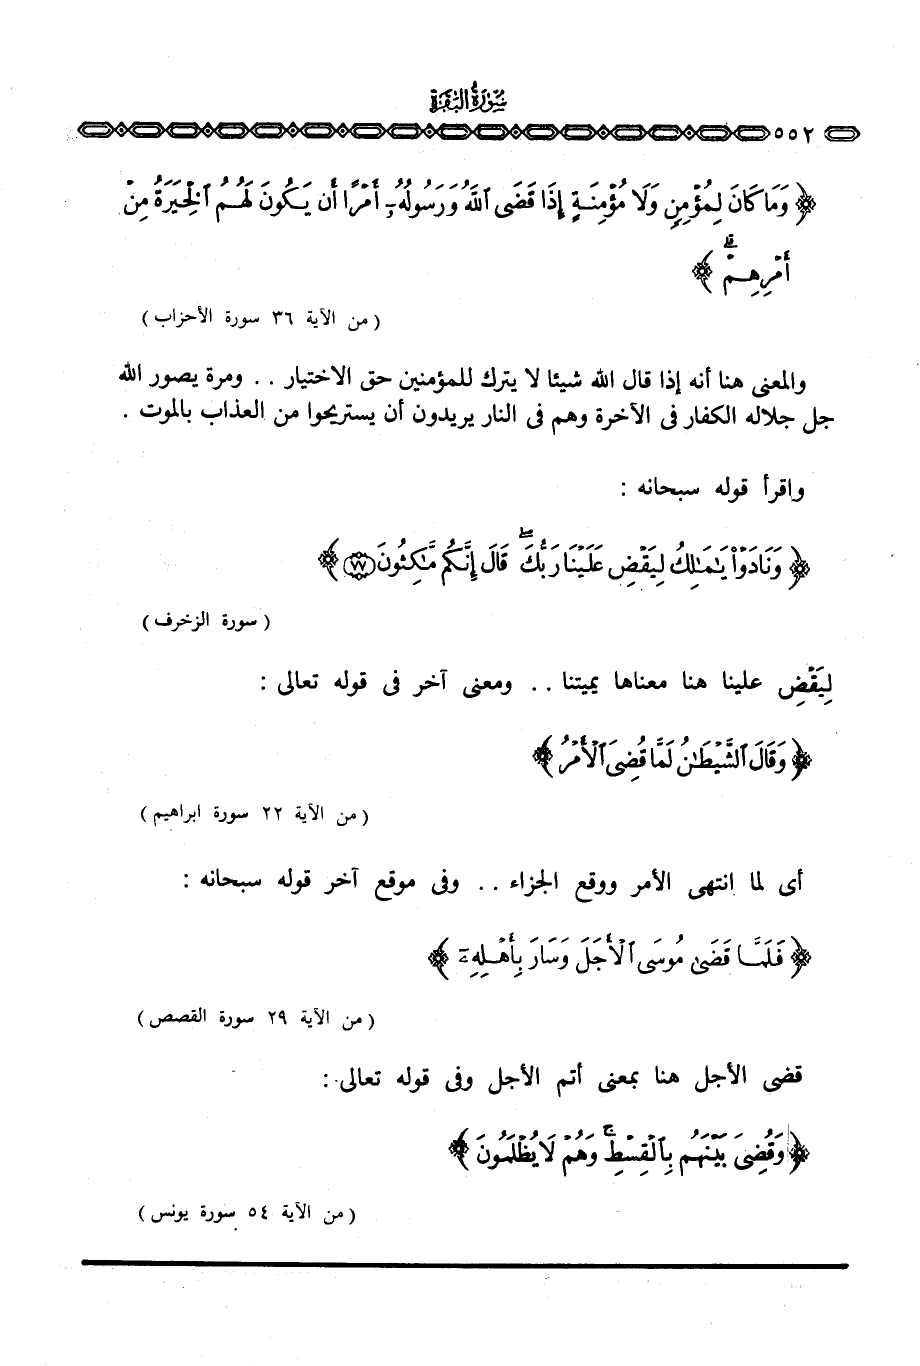 سُورَةُ البَقَرَة
٥٥٢
﴿ وَمَا كَانَ لِمُؤْمِنٍ وَلَا مُؤْمِنَةٍ إِذَا قَضَى ٱللَّهُ وَرَسُولُهُۥٓ أَمْرًا أَن يَكُونَ لَهُمُ ٱلْخِيَرَةُ مِنْ
أَمْرِهِمْ ۗ ﴾
( من الآية ٣٦ سورة الأحزاب )
والمعنى هنا أنه إذا قال الله شيئا لا يترك للمؤمنين حق الاختيار . . ومرة يصور الله
جل جلاله الكفار فى الآخرة وهم فى النار يريدون أن يستريحوا من العذاب بالموت .
واقرأ قوله سبحانه :
﴿ وَنَادَوْا۟ يَـٰمَـٰلِكُ لِيَقْضِ عَلَيْنَا رَبُّكَ ۖ قَالَ إِنَّكُم مَّـٰكِثُونَ ٧٧ ﴾
( سورة الزخرف )
لِيَقْضِ علينا هنا معناها يميتنا . . ومعنى آخر فى قوله تعالى :
﴿ وَقَالَ ٱلشَّيْطَـٰنُ لَمَّا قُضِىَ ٱلْأَمْرُ ﴾
( من الآية ٢٢ سورة ابراهيم )
أى لما انتهى الأمر ووقع الجزاء . . وفى موقع آخر قوله سبحانه :
﴿ فَلَمَّا قَضَىٰ مُوسَى ٱلْأَجَلَ وَسَارَ بِأَهْلِهِۦٓ ﴾
( من الآية ٢٩ سورة القصص )
قضى الأجل هنا بمعنى أتم الأجل وفى قوله تعالى :
﴿ وَقُضِىَ بَيْنَهُم بِٱلْقِسْطِ ۚ وَهُمْ لَا يُظْلَمُونَ ﴾
( من الآية ٥٤ سورة يونس )